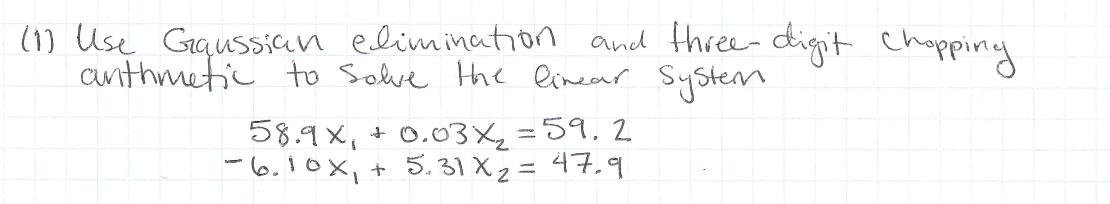 (1) Use Gaussian elimination and three-digit chopping
arithmetic to solve the linear system
58.9x₁ + 0.03x₂ = 59.2
-6.10x₁ + 5.31x₂ = 47.9